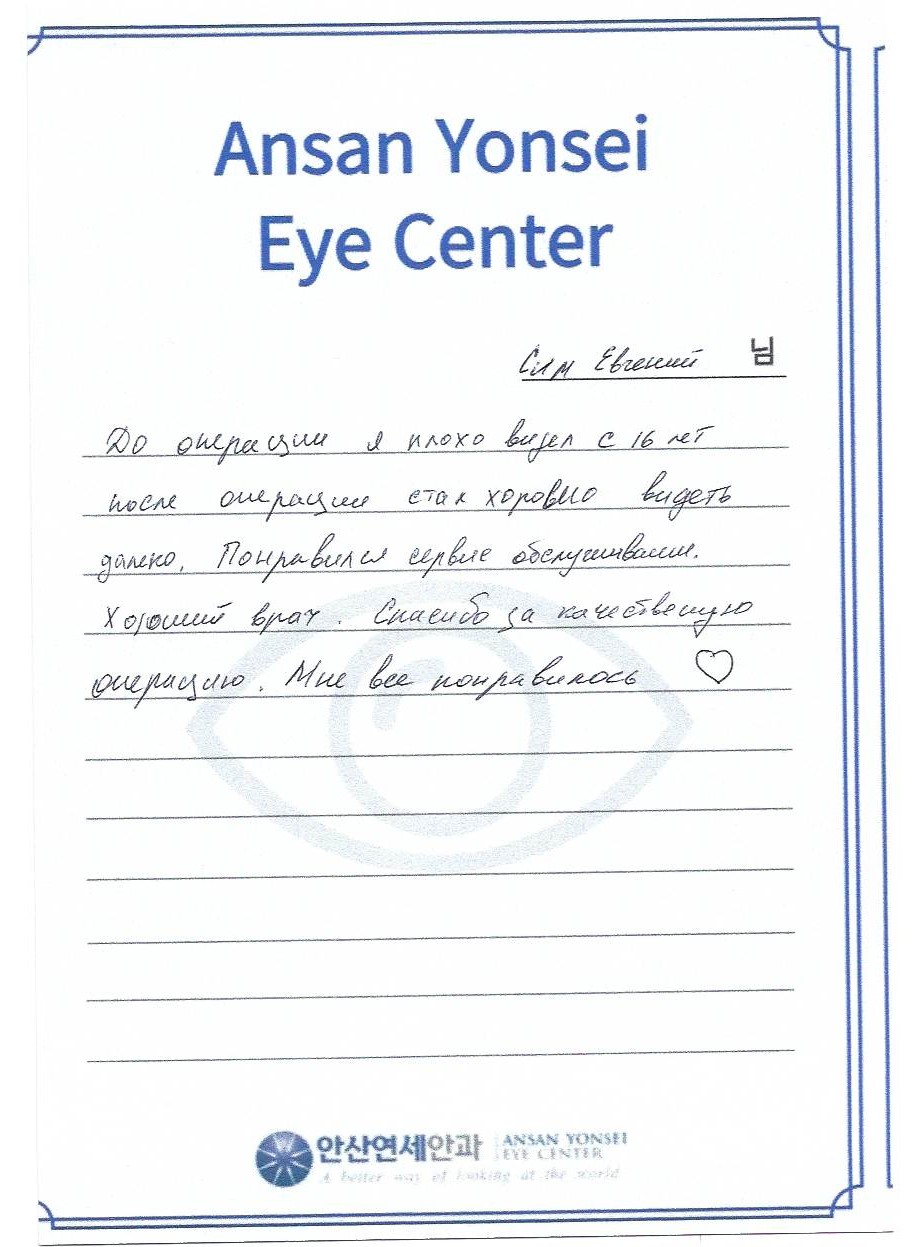 Ansan Yonsei
Eye Center
Сим Евгений 님
До операции я плохо видел с 16 лет
после операции стал хорошо видеть
далеко. Понравился сервис обслуживания.
Хороший врач. Спасибо за качественую
операцию. Мне все понравилось ♡
안산연세안과 ANSAN YONSEI
EYE CENTER
A better way of looking at the world